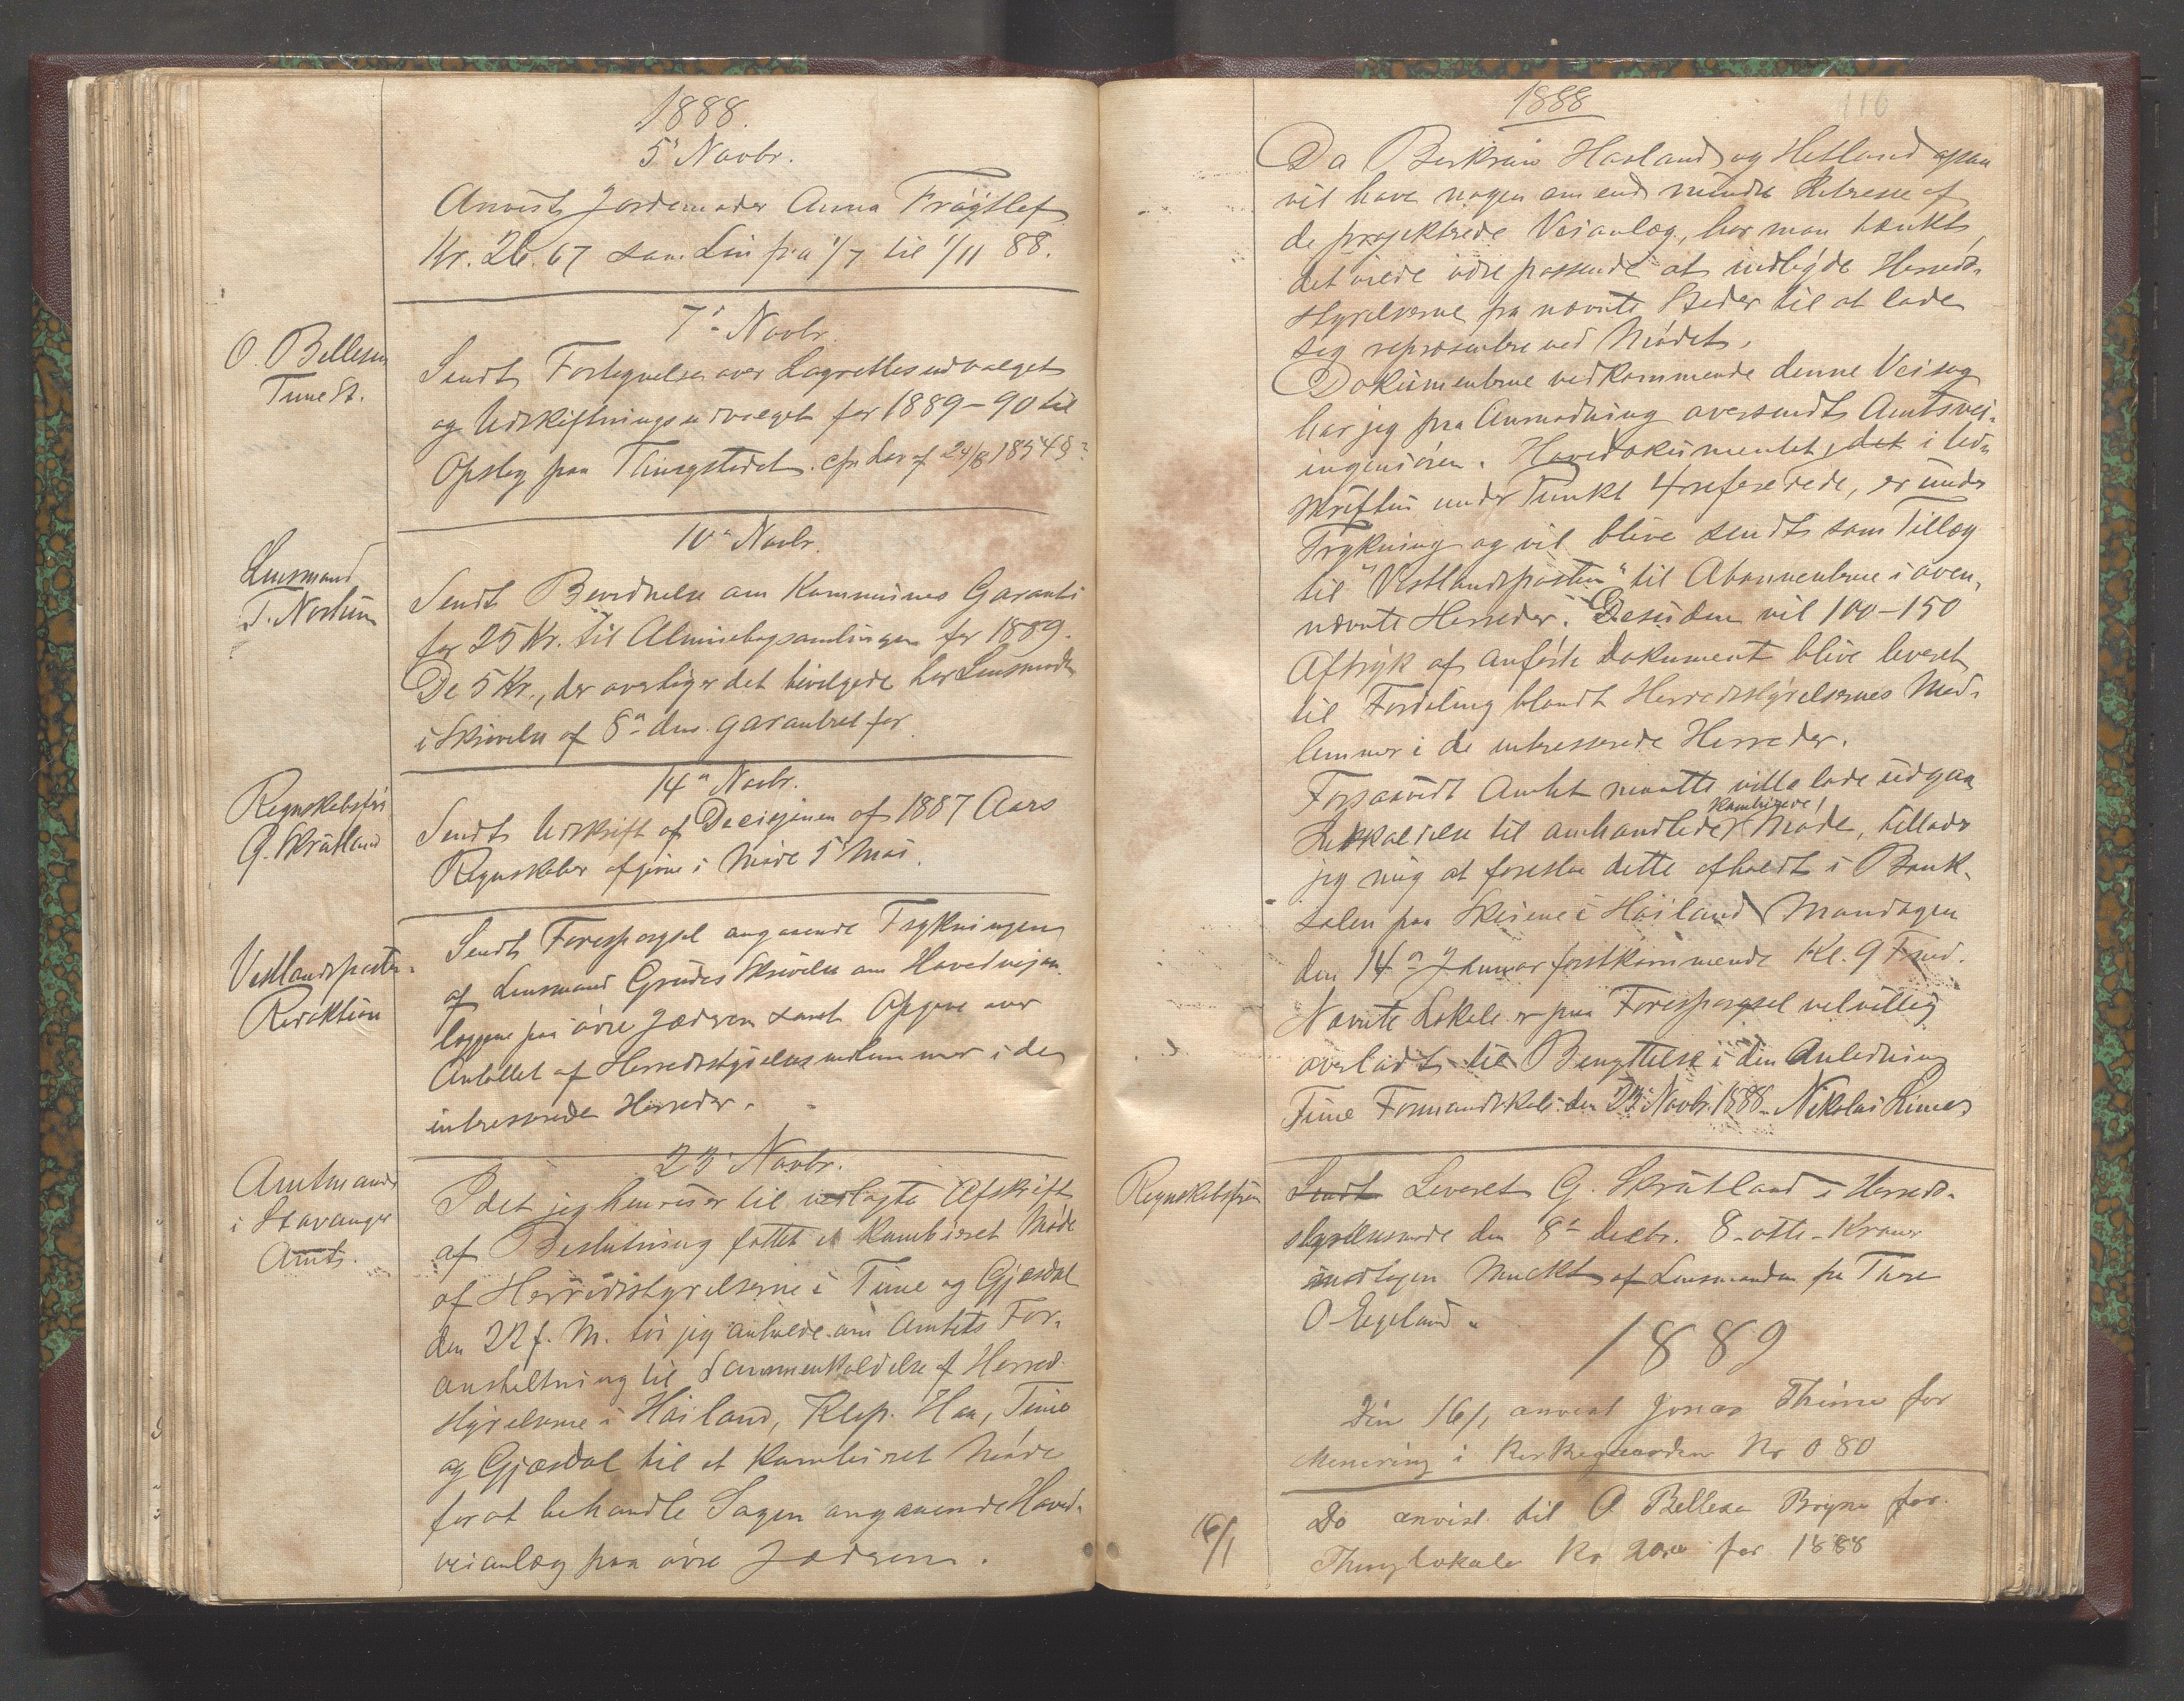 1888.
5' Novbr.
Anvist Jordemoder Anna Frøyslef
Kr. 26.67 som Løn fra 1/7 til 1/11 88.
7' Novbr.
O. Bellesen
Time St.
Sendt Fortegnelse over Lagrettesudvalget
og Udskiftningsudvalget for 1889-90 til
Opslag paa Thingstedet. cfr. Lov af 24/8 1854 §
10' Novbr.
Lensmand
T. Norheim
Sendt Bevidnelse om Kommunens Garanti
for 25 Kr. til Almuebogsamlingen for 1889.
De 5 Kr., der overstiger det bevilgede har Lensmanden
i Skrivelse af 8' dns. garanteret for.
14' Novbr.
Regnskabsfør
G. Skrudland
Sendt Udskrift af Decisjonen af 1887 Aars
Regnskaber afgivne i Møde 5' Mai.
Vestlandspostens
Redaktion
Sendt Forespørgsel angaaende Trykningen
af Lensmand Grudes Skrivelse om Hovedveian-
læggene paa øvre Jæderen samt Opgave over
Antallet af Herredsstyrelsesmedlemmer i de
interesserede Herreder.
23' Novbr.
Amtmanden
i Stavanger
Amt.
Idet jeg henviser til vedlagte Afskrift
af Beslutning fattet i kombineret Møde
af Herredsstyrelserne i Time og Gjesdal
den 22 f. M. tør jeg anholde om Amtets For-
anstaltning til Sammenkaldelse af Herreds-
styrelserne i Høiland, Klep, Haa, Time
og Gjesdal til et kombineret Møde
for at behandle Sagen angaaende Hoved-
veianlæg paa øvre Jæderen.
1888
116
Da Bjerkreim Havland og Hetland ogsaa
vil have nogen om end mindre Interesse af
de projekterede Veianlæg, har man tænkt,
det vilde være passende at indbyde Herreds-
styrelserne fra nævnte Steder til at lade
sig repræsentere ved Mødet.
Dokumenterne vedkommende denne Veisag
har jeg paa Anmodning oversendt Amtsvei-
ingeniøren. Hoveddokumentet, det i Ud-
skriften under Punkt 4 refererede, er under
Trykning og vil blive sendt som Tillæg
til "Vestlandsposten" til Abonnenterne i oven-
nævnte Herreder. Desuden vil 100-150
Aftryk af anførte Dokument blive leveret
til Fordeling blandt Herredsstyrelsernes Med-
lemmer i de interesserede Herreder.
Forsaavidt Amtet maatte ville lade udgaa
kombinerede
Indkaldelse til omhandlede Møde, tillader
jeg mig at foreslaa dette afholdt i Bank-
salen paa Skeiene i Høiland Mandagen
den 14' Januar førstkommende Kl. 9 Fmd.
Nævnte Lokale er paa Forespørgsel velvillig
overladt til Benyttelse i den Anledning
Time Formandskab den 23' Novbr. 1888. Nikolai Lima
Regnskabsføren
Sendt Leveret G. Skrudland i Herreds-
styrelsesmøde den 8' Decbr. 8-otte-Kroner
modtagen Mulkt af Lensmanden fra Thore
O. Egeland.
1889
Den 16/1 anvist Jonas Thime for
Menering i Kirkegaarden Kr 0 80
16/1
Do anvist til O Bellesen Bryne for
Thinglokale Kr for 1888